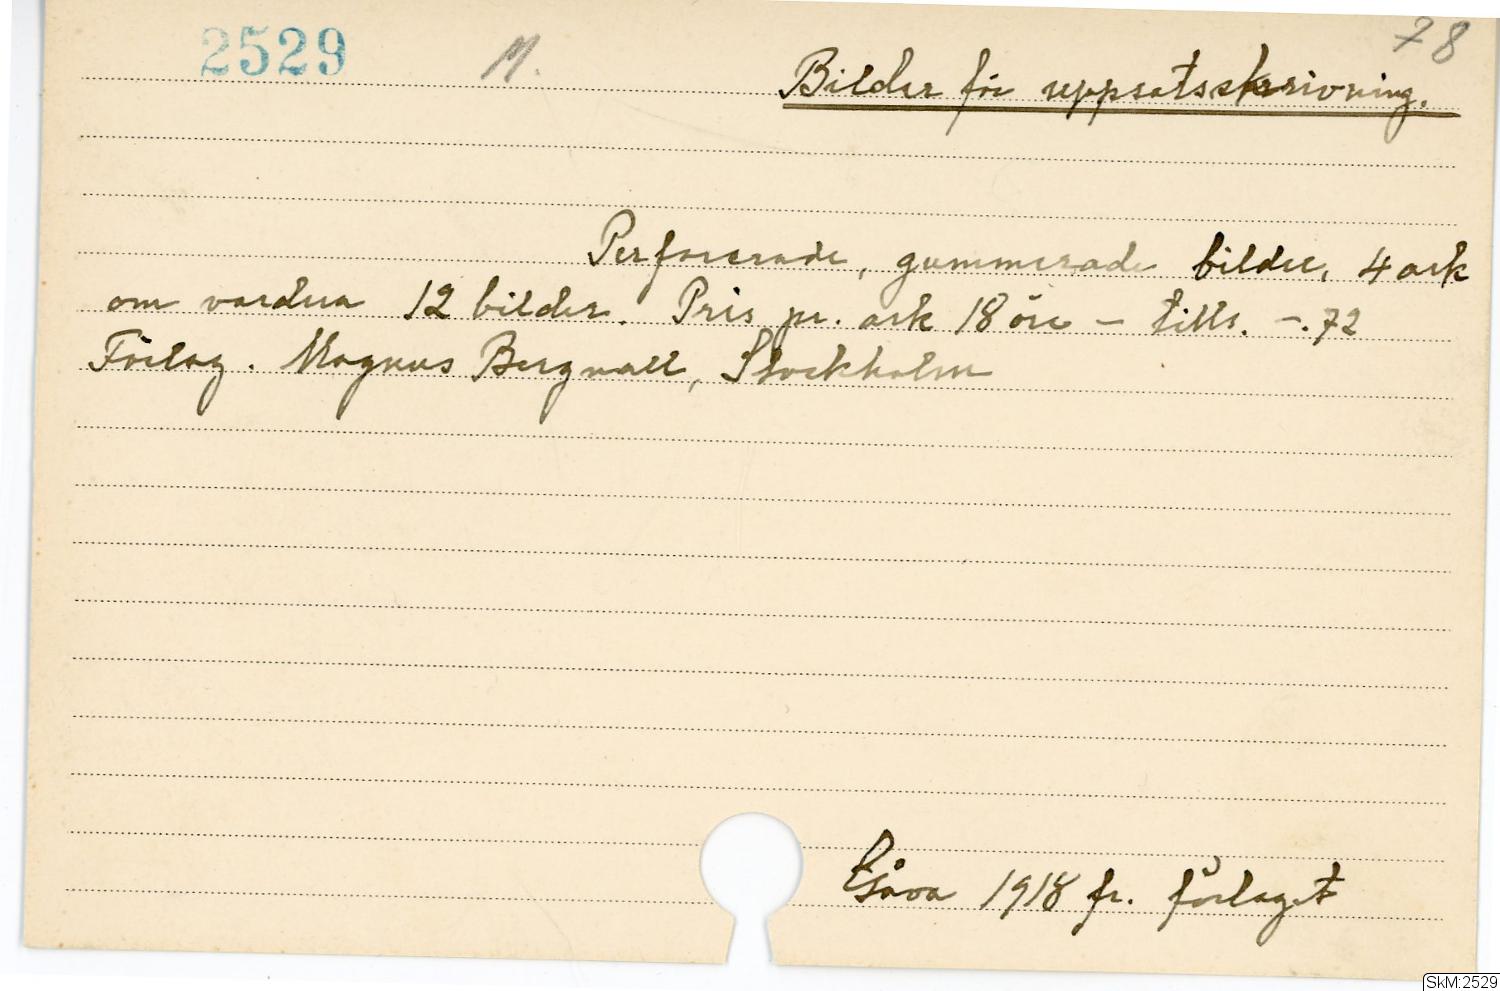 2529 M. 78
Bilder för uppsatsskrivning.
Perforerade, gummerade bilder, 4 ark
om vardera 12 bilder. Pris pr. ark 18 öre – tills. –.72
Förlag. Magnus Bergvall, Stockholm
Gåva 1918 fr. förlaget
SkM:2529